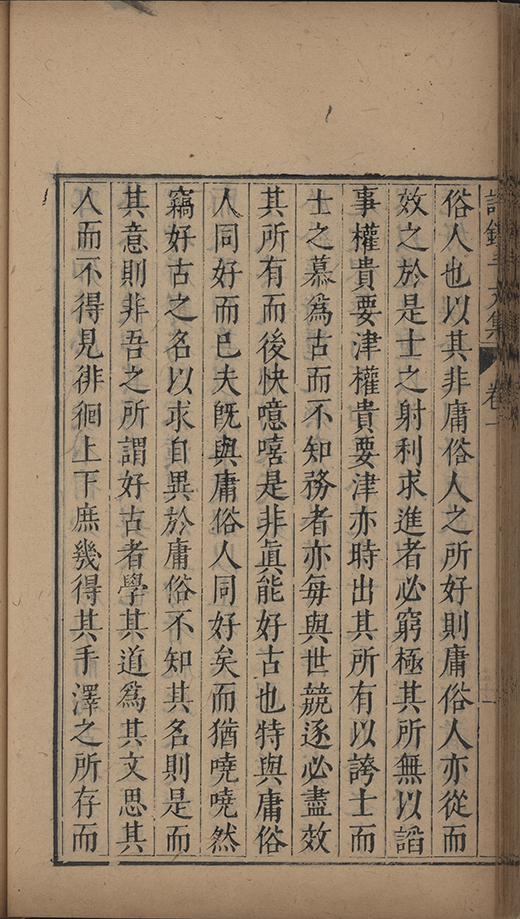 許鍾斗文集 卷一
俗人也以其非庸俗人之所好則庸俗人亦從而
效之於是士之射利求進者必窮極其所無以謟
事權貴要津權貴要津亦時出其所有以誇士而
士之慕爲古而不知務者亦每與世競逐必盡效
其所有而後快噫嘻是非眞能好古也特與庸俗
人同好而已夫旣與庸俗人同好矣而猶嘵嘵然
竊好古之名以求自異於庸俗不知其名則是而
其意則非吾之所謂好古者學其道爲其文思其
人而不得見徘徊上下庶幾得其手澤之所存而